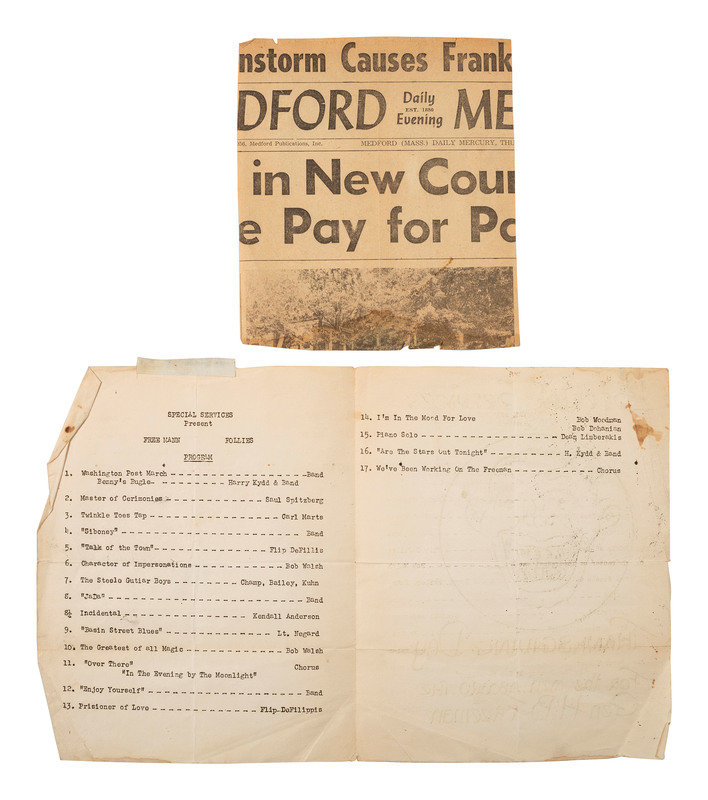 nstorm Causes Frank
DFORD Daily EST. 1880 Evening ME
56, Medford Publications, Inc. MEDFORD (MASS.) DAILY MERCURY, THU
in New Cour
e Pay for Po
SPECIAL SERVICES
Present
FREE MANN FOLLIES
PROGRAM
1. Washington Post March Band
Benny's Bugle Harry Kydd & Band
2. Master of Cerimonies Saul Spitzberg
3. Twinkle Toes Tap Carl Marts
4. "Siboney" Band
5. "Talk of the Town" Flip DeFillis
6. Character of Impersonations Bob Walch
7. The Steele Gutiar Boys Champ, Bailey, Kuhn
8. "JaDa" Band
8½ Incidental Kendall Anderson
9. "Basin Street Blues" Lt. Negard
10. The Greatest of all Magic Bob Walsh
11. "Over There" Chorus
"In The Evening by The Moonlight"
12. "Enjoy Yourself" Band
13. Prisioner of Love Flip DeFilippis
14. I'm In The Mood For Love Bob Woodman
Bob Dohanian
15. Piano Solo Dean Limberakis
16. "Are The Stars Out Tonight" H. Kydd & Band
17. We've Been Working On The Freeman Chorus